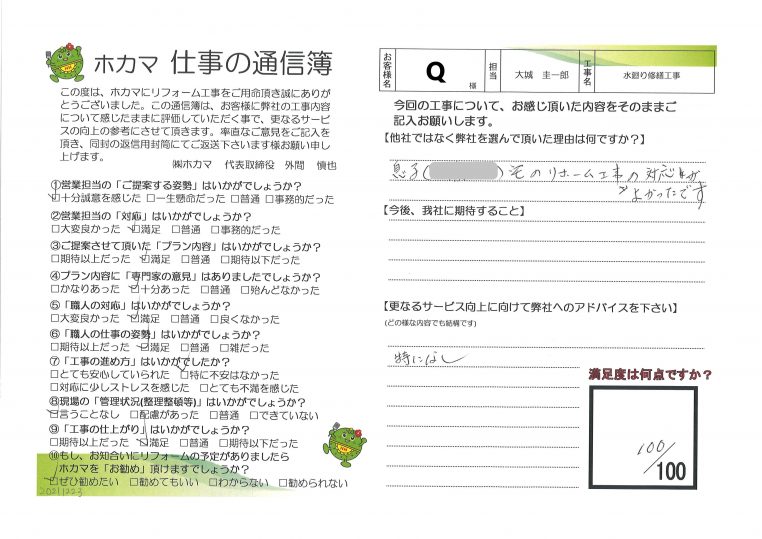 ホカマ 仕事の通信簿
この度は、ホカマにリフォーム工事をご用命頂き誠にありが
とうございました。この通信簿は、お客様に弊社の工事内容
について感じたままに評価していただく事で、更なるサービ
スの向上の参考にさせて頂きます。率直なご意見をご記入を
頂き、同封の返信用封筒にてご返送下さいます様お願い申し
上げます。
㈱ホカマ 代表取締役 外間 慎也
①営業担当の「ご提案する姿勢」はいかがでしょうか？
☑十分誠意を感じた □一生懸命だった □普通 □事務的だった
②営業担当の「対応」はいかがでしょうか？
□大変良かった ☑満足 □普通 □事務的だった
③ご提案させて頂いた「プラン内容」はいかがでしょうか？
□期待以上だった ☑満足 □普通 □期待以下だった
④プラン内容に「専門家の意見」はありましたでしょうか？
□かなりあった ☑十分あった □普通 □殆んどなかった
⑤「職人の対応」はいかがでしょうか？
□大変良かった ☑満足 □普通 □良くなかった
⑥「職人の仕事の姿勢」はいかがでしょうか？
□期待以上だった ☑満足 □普通 □雑だった
⑦「工事の進め方」はいかがでしたか？
□とても安心していられた ☑特に不安はなかった
□対応に少しストレスを感じた □とても不満を感じた
⑧現場の「管理状況(整理整頓等)」はいかがでしょうか？
☑言うことなし □配慮があった □普通 □できていない
⑨「工事の仕上がり」はいかがでしょうか？
□期待以上だった ☑満足 □普通 □期待以下だった
⑩もし、お知合いにリフォームの予定がありましたら
ホカマを「お勧め」頂けますでしょうか？
☑ぜひ勧めたい □勧めてもいい □わからない □勧められない
20211223
お客様名 Q 様 担当 大城 圭一郎 工事名 水廻り修繕工事
今回の工事について、お感じ頂いた内容をそのままご
記入お願いします。
【他社ではなく弊社を選んで頂いた理由は何ですか？】
息子( )宅のリホーム工事の対応が
よかったです
【今後、我社に期待すること】
【更なるサービス向上に向けて弊社へのアドバイスを下さい】
(どの様な内容でも結構です)
特になし
満足度は何点ですか？
100/100